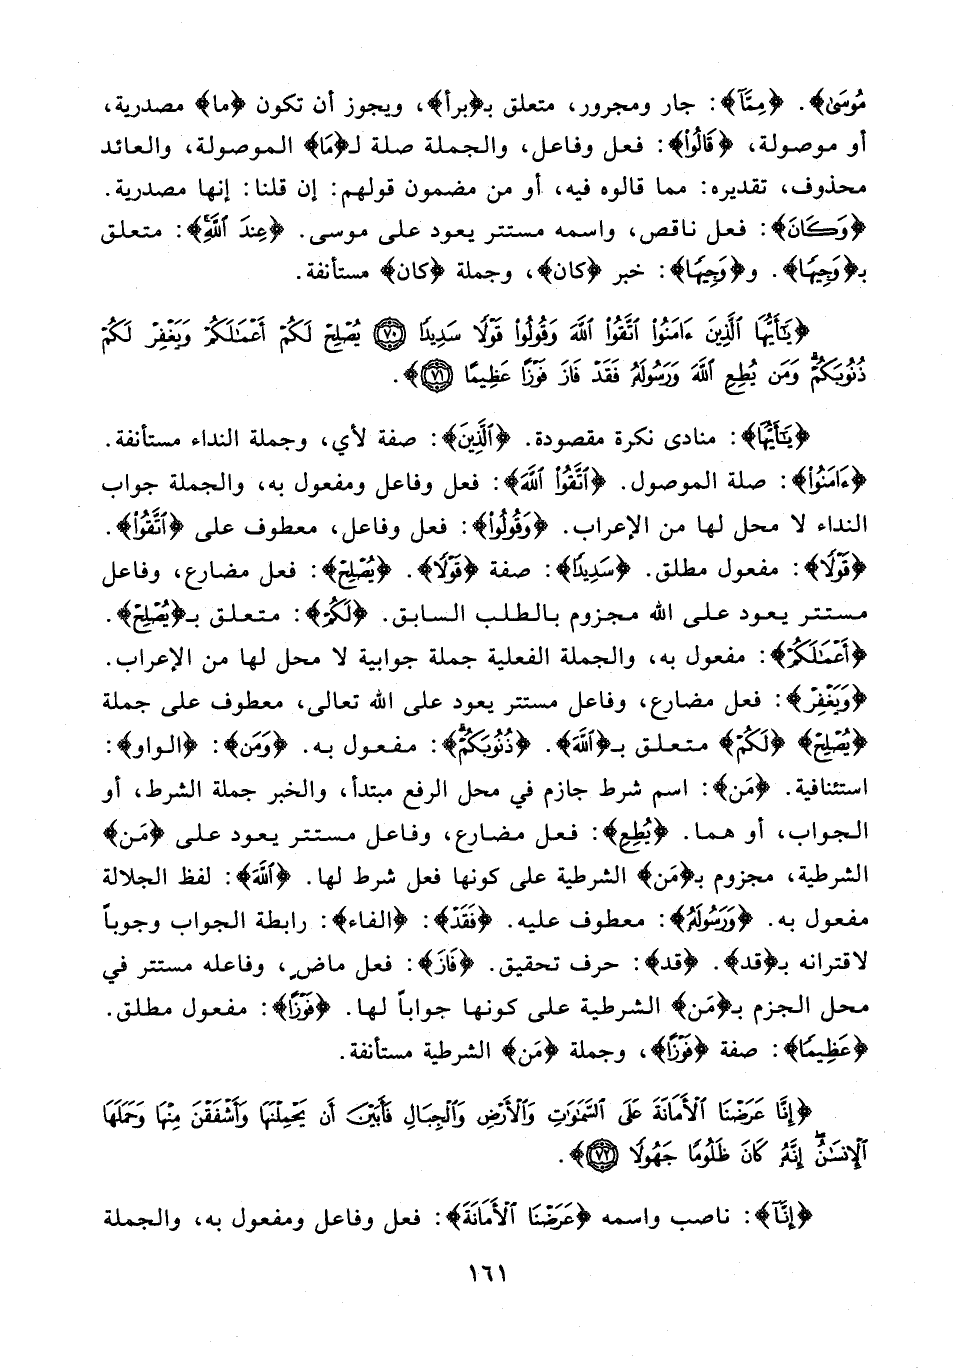 مُوسَىٰ﴾. ﴿مِمَّا﴾: جار ومجرور، متعلق بـ﴿برأ﴾، ويجوز أن تكون ﴿ما﴾ مصدرية،
أو موصولة، ﴿قَالُواْ﴾: فعل وفاعل، والجملة صلة لـ﴿مَا﴾ الموصولة، والعائد
محذوف، تقديره: مما قالوه فيه، أو من مضمون قولهم: إن قلنا: إنها مصدرية.
﴿وَكَانَ﴾: فعل ناقص، واسمه مستتر يعود على موسى. ﴿عِندَ ٱللَّهِ﴾: متعلق
بـ﴿وَجِيهًا﴾. و﴿وَجِيهًا﴾: خبر ﴿كان﴾، وجملة ﴿كان﴾ مستأنفة.
﴿يَـٰٓأَيُّهَا ٱلَّذِينَ ءَامَنُواْ ٱتَّقُواْ ٱللَّهَ وَقُولُواْ قَوْلًا سَدِيدًا ٧٠ يُصْلِحْ لَكُمْ أَعْمَـٰلَكُمْ وَيَغْفِرْ لَكُمْ
ذُنُوبَكُمْ ۗ وَمَن يُطِعِ ٱللَّهَ وَرَسُولَهُۥ فَقَدْ فَازَ فَوْزًا عَظِيمًا ٧١﴾.
﴿يَـٰٓأَيُّهَا﴾: منادى نكرة مقصودة. ﴿ٱلَّذِينَ﴾: صفة لأي، وجملة النداء مستأنفة.
﴿ءَامَنُواْ﴾: صلة الموصول. ﴿ٱتَّقُواْ ٱللَّهَ﴾: فعل وفاعل ومفعول به، والجملة جواب
النداء لا محل لها من الإعراب. ﴿وَقُولُواْ﴾: فعل وفاعل، معطوف على ﴿ٱتَّقُواْ﴾.
﴿قَوْلًا﴾: مفعول مطلق. ﴿سَدِيدًا﴾: صفة ﴿قَوْلًا﴾. ﴿يُصْلِحْ﴾: فعل مضارع، وفاعل
مستتر يعود على الله مجزوم بالطلب السابق. ﴿لَكُمْ﴾: متعلق بـ﴿يُصْلِحْ﴾.
﴿أَعْمَـٰلَكُمْ﴾: مفعول به، والجملة الفعلية جملة جوابية لا محل لها من الإعراب.
﴿وَيَغْفِرْ﴾: فعل مضارع، وفاعل مستتر يعود على الله تعالى، معطوف على جملة
﴿يُصْلِحْ﴾ ﴿لَكُمْ﴾ متعلق بـ﴿ٱللَّهَ﴾. ﴿ذُنُوبَكُمْ ۗ﴾: مفعول به. ﴿وَمَن﴾: ﴿الواو﴾:
استئنافية. ﴿مَن﴾: اسم شرط جازم في محل الرفع مبتدأ، والخبر جملة الشرط، أو
الجواب، أو هما. ﴿يُطِعِ﴾: فعل مضارع، وفاعل مستتر يعود على ﴿مَن﴾
الشرطية، مجزوم بـ﴿مَن﴾ الشرطية على كونها فعل شرط لها. ﴿ٱللَّهَ﴾: لفظ الجلالة
مفعول به. ﴿وَرَسُولَهُۥ﴾: معطوف عليه. ﴿فَقَدْ﴾: ﴿الفاء﴾: رابطة الجواب وجوباً
لاقترانه بـ﴿قد﴾. ﴿قد﴾: حرف تحقيق. ﴿فَازَ﴾: فعل ماضٍ، وفاعله مستتر في
محل الجزم بـ﴿مَن﴾ الشرطية على كونها جواباً لها. ﴿فَوْزًا﴾: مفعول مطلق.
﴿عَظِيمًا﴾: صفة ﴿فَوْزًا﴾، وجملة ﴿مَن﴾ الشرطية مستأنفة.
﴿إِنَّا عَرَضْنَا ٱلْأَمَانَةَ عَلَى ٱلسَّمَـٰوَٰتِ وَٱلْأَرْضِ وَٱلْجِبَالِ فَأَبَيْنَ أَن يَحْمِلْنَهَا وَأَشْفَقْنَ مِنْهَا وَحَمَلَهَا
ٱلْإِنسَـٰنُ ۖ إِنَّهُۥ كَانَ ظَلُومًا جَهُولًا ٧٢﴾.
﴿إِنَّا﴾: ناصب واسمه ﴿عَرَضْنَا ٱلْأَمَانَةَ﴾: فعل وفاعل ومفعول به، والجملة
١٦١